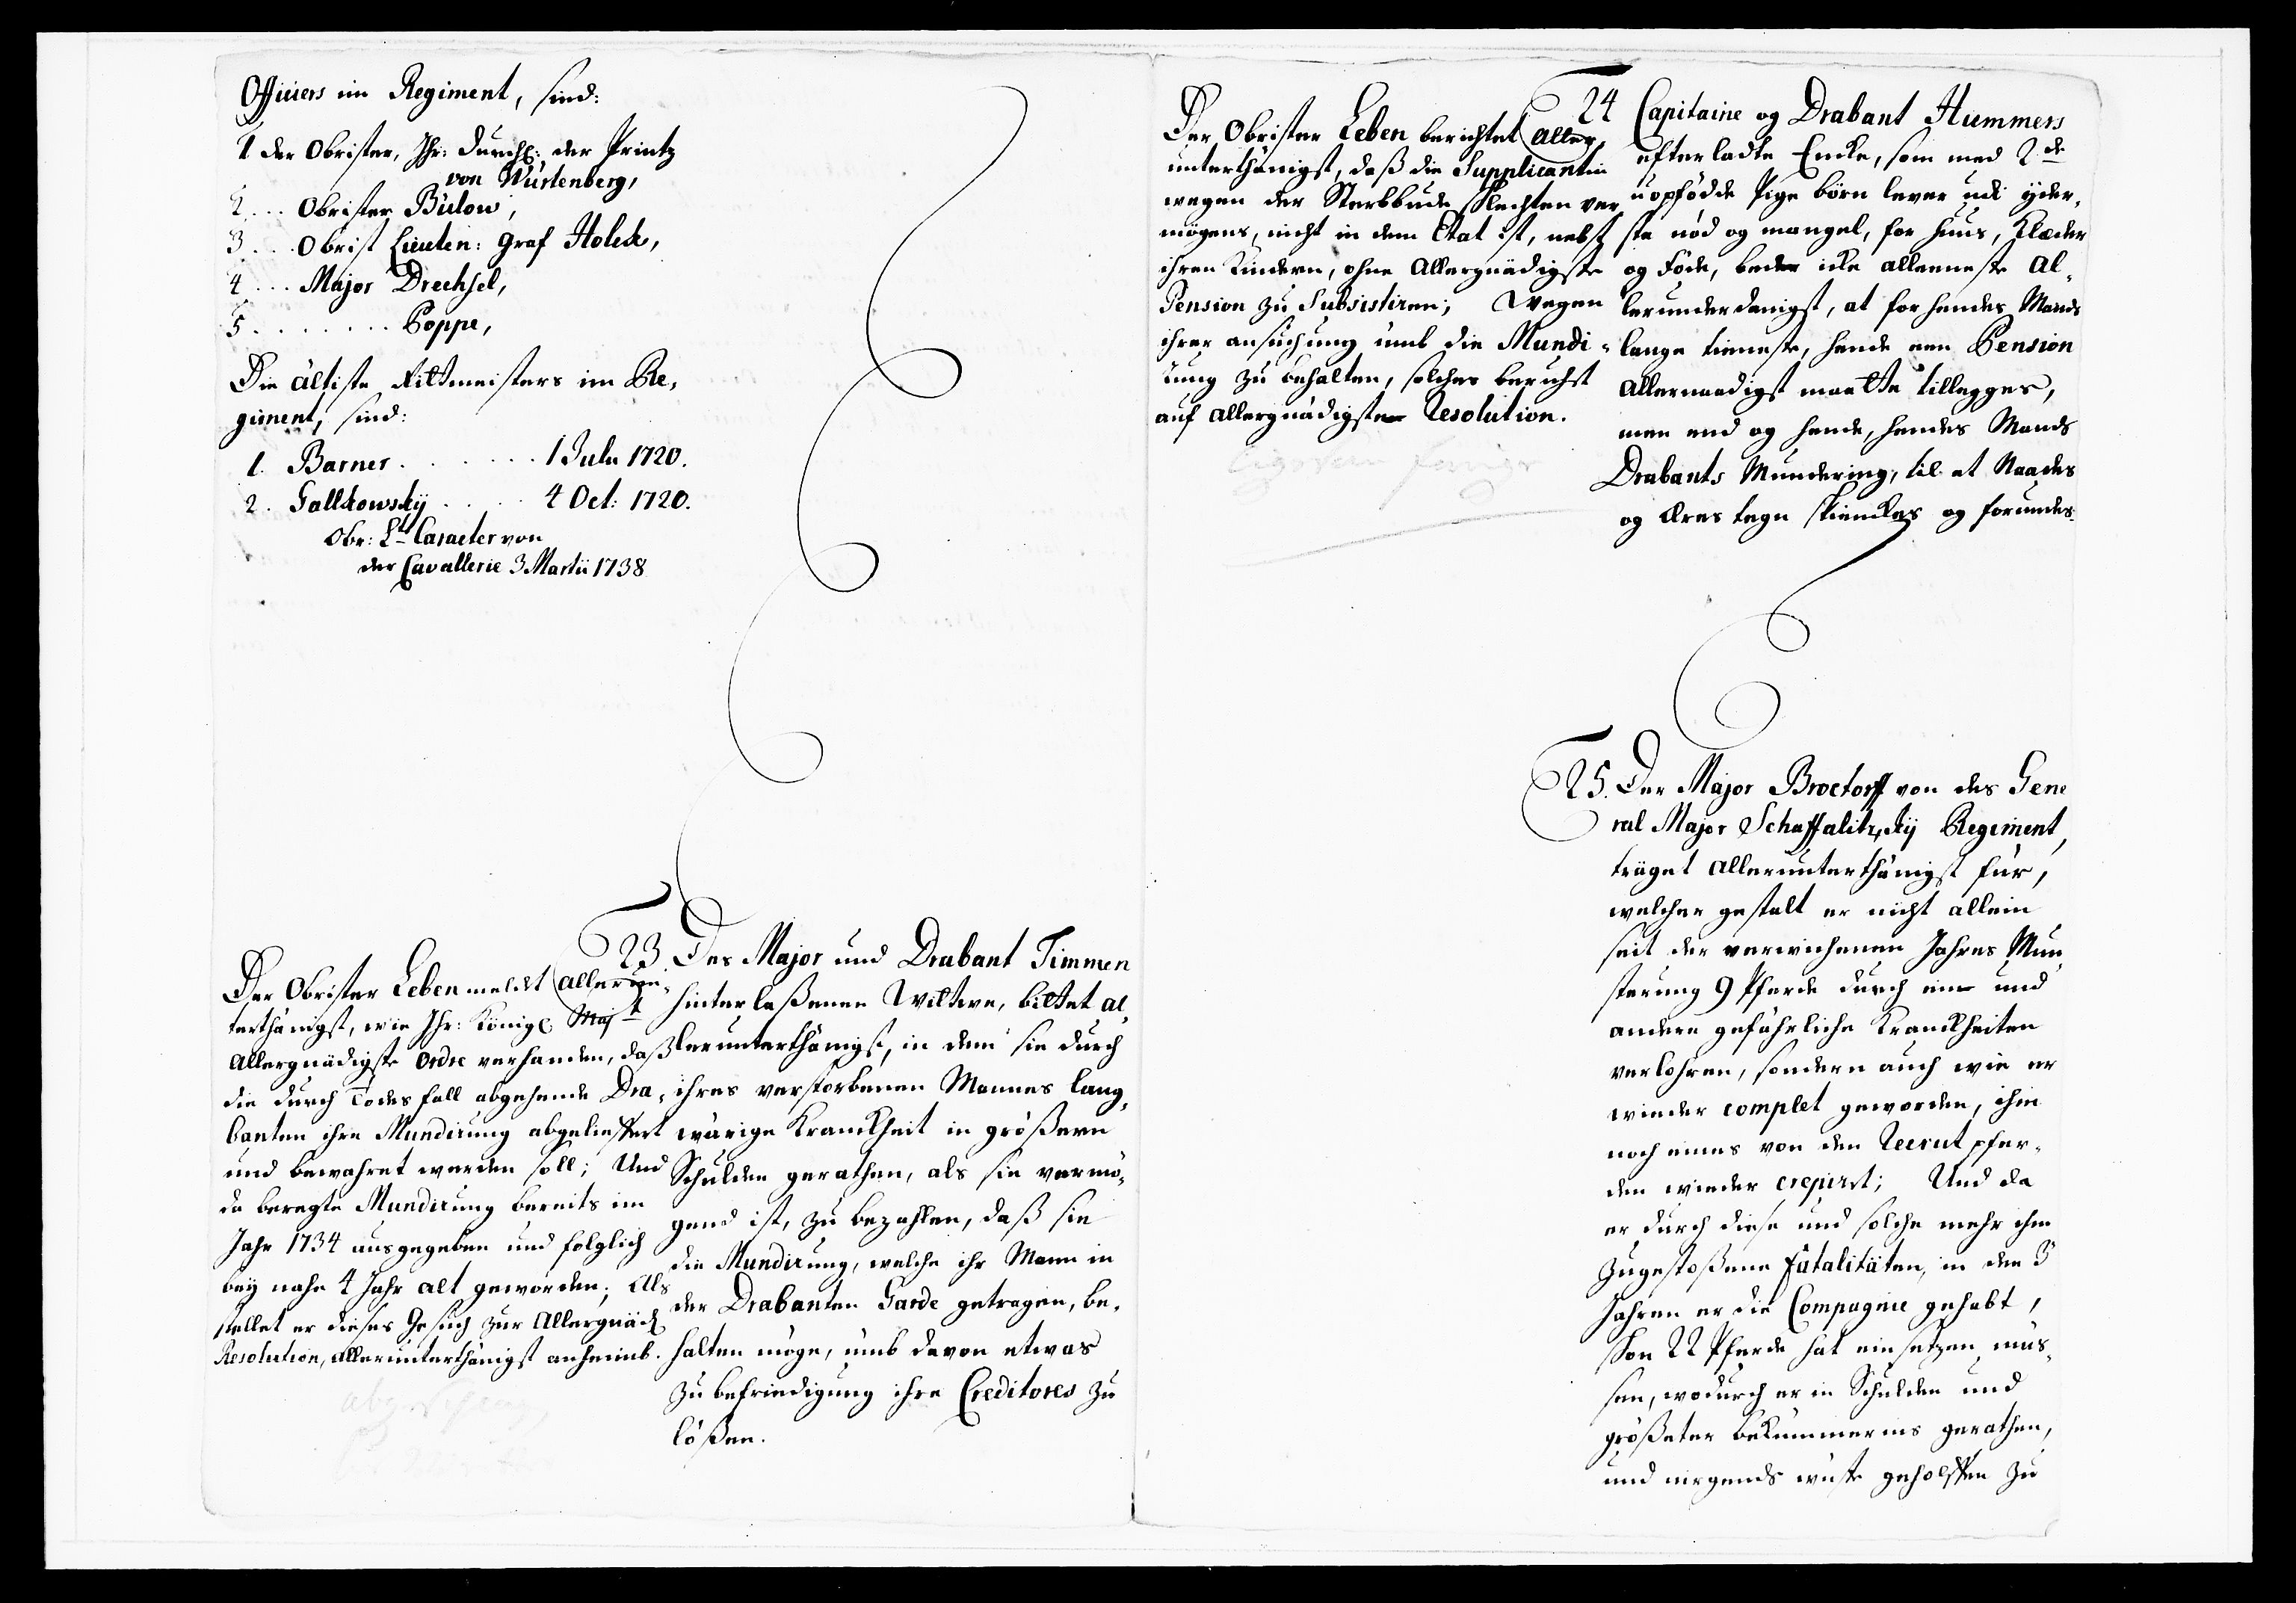 Officiers im Regiment, sind:
1 der Obrister, Ihr: Durchl: der Printz
von Würtenberg,
2 ... Obrister Bülow,
3 ... Obrist Lieuten: Graf Holck,
4 ... Major Drechsel,
5 ........ Poppe,
Die ältiste Rittmeisters im Re„
giment, sind:
1. Barner ....... 1 Julii 1720.
2. Gallkowskÿ ..... 4 Oct: 1720.
Obr: Lt Caracter von
der Cavallerie 3 Martii 1738
Der Obrister Leben meldet allerun„
terthänigst, wie Ihr: Königl Majt
Allergnädigste Ordre verhanden, daß
die durch Todesfall abgehende Dra„
banten ihre Mundirung abgeliefert
und bewahret werden soll; Und
da beregte Mundirung bereits im
Jahr 1734 ausgegeben und folglich
beÿ nahe 4 Jahr alt geworden; Als
stellet er dieses Gesuch zur Allergnäd
Resolution, allerunterthänigst anheimb.
23. Des Major und Drabant Timmen
hinterlaßenen Wittwe, bittet al„
lerunterthänigst, in dem sie durch
ihres verstorbenen Mannes lang„
wärige Kranckheit in größern
Schulden gerathen, als sie vermö„
gend ist, zu bezahlen, daß sie
die Mundirung, welche ihr Mann in
der Drabanten Garde getragen, be„
halten möge, umb davon etwas
zu befriedigung ihre Creditores zu
lößen.
Der Obrister Leben berichtet aller„
unterthänigst, daß die Supplicantin
wegen der Sterbbude schlechten ver„
mögens, nicht in dem Etat ist, nebst
ihren Kindern, ohne Allergnädigste
Pension zu Subsistiren; Wegen
ihrer ansuchung umb die Mundi„
rung zu behalten, solches beruhet
auf allergnädigste Resolution.
24 Capitaine og Drabant Hummers
efterladte Encke, som med 2de
uopfödde Pige börn lever udi ÿder„
ste nöd og mangel, for huus, Klæder
og Föde, beder icke alleeneste Al„
lerunderdanigst, at for hendes Mands
lange tieneste, hende een Pension
Allernaadigst maatte tillegges,
men end og hende, hendes Mands
Drabants Mundering, til et Naades
og Æres tegn skienckes og forundes.
25. Der Major Broctorff von des Gene
ral Major Schaffalitzkÿ Regiment,
träget allerunterthänigst für,
welcher gestalt er nicht allein
seit der verwichenen Jahres Mun
sterung 9 Pferde durch ein und
andere gefährliche Kranckheiten
verlohren, sondern auch wie er
wieder complet geworden, ihm
noch eines von den Recrut pfer„
den wieder crepirt; Und da
er durch diese und solche mehr ihm
zugestoßene fatalitäten, in den 3
Jahren er die Compagnie gehabt,
schon 22 Pferde hat einsetzen müs„
sen, wodurch er in Schulden und
größeter bekümmernis gerathen,
und nirgends wuste geholffen zu